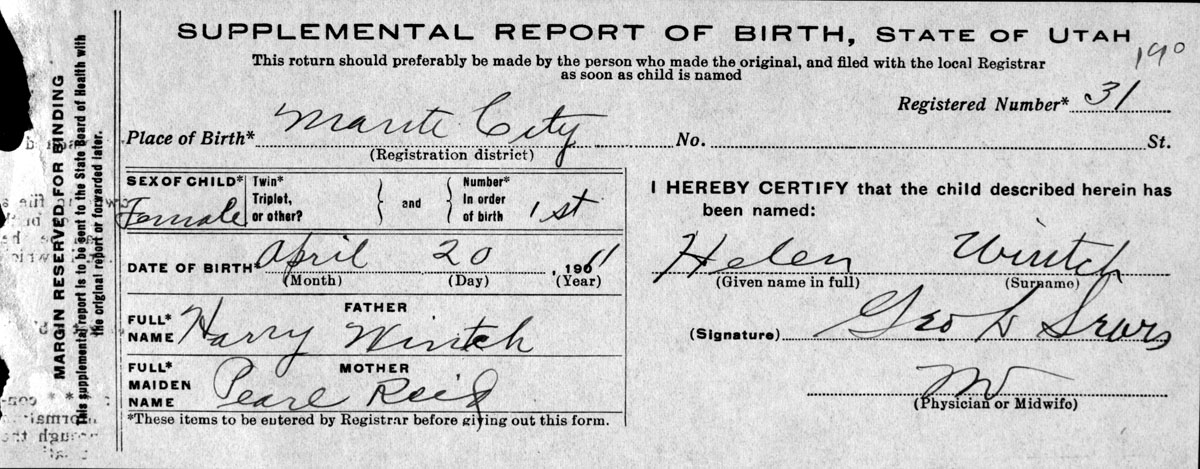 SUPPLEMENTAL REPORT OF BIRTH, STATE OF UTAH
190
This return should preferably be made by the person who made the original, and filed with the local Registrar
as soon as child is named
Registered Number* 31
Place of Birth* Mante City No. St.
(Registration district)
SEX OF CHILD* Female
Twin*
Triplet,
or other?
and
Number*
In order
of birth 1st
DATE OF BIRTH April 20, 1911
(Month) (Day) (Year)
FATHER
FULL*
NAME Harry Wintch
MOTHER
FULL*
MAIDEN
NAME Pearl Reid
*These items to be entered by Registrar before giving out this form.
I HEREBY CERTIFY that the child described herein has
been named:
Helen Wintch
(Given name in full) (Surname)
(Signature) Geo L Sears
MD
(Physician or Midwife)
MARGIN RESERVED FOR BINDING
This supplemental report is to be sent to the State Board of Health with
the original report or forwarded later.